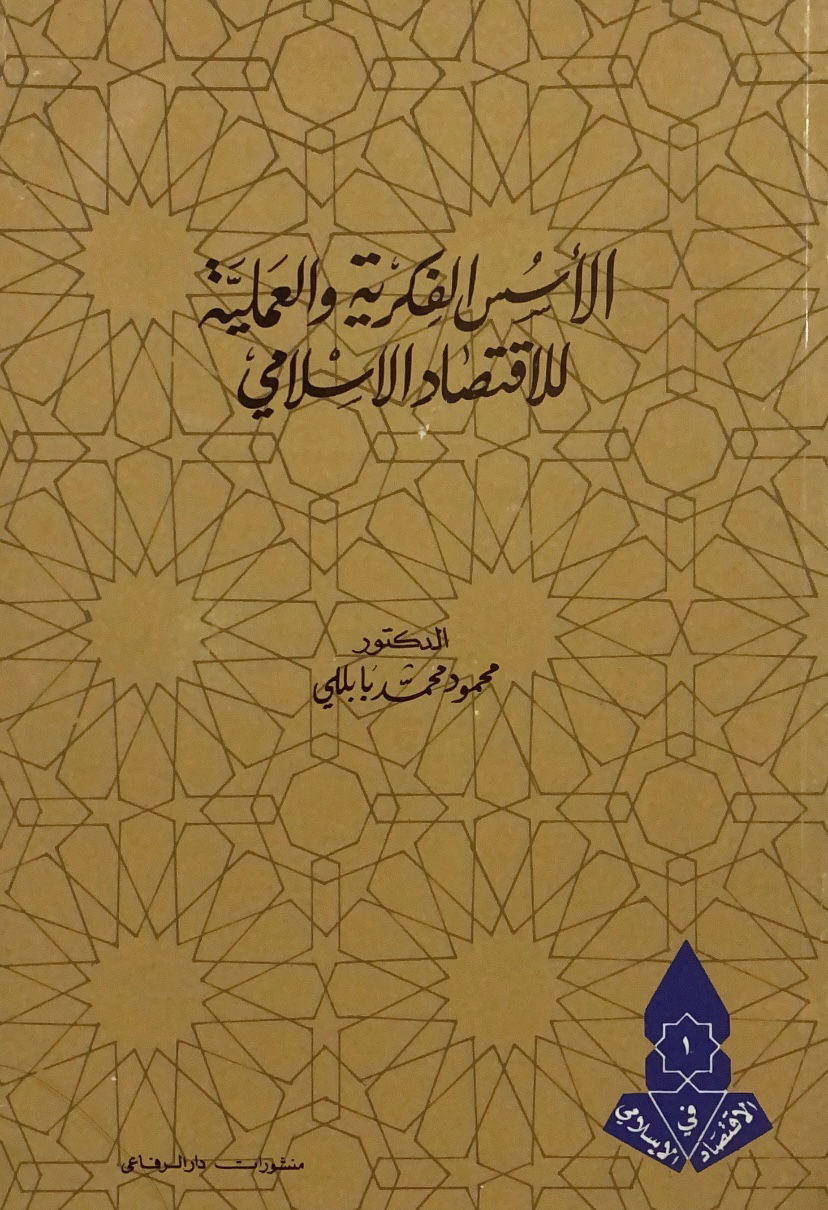 الأسُس الفِكريَّة والعَمليَّة
للاقتصَاد الاسْلامي
الدكتور
محمود محمّد بَابللي
١
في
الاقتصَاد
الاسلامي
منشورات دار الرفاعي